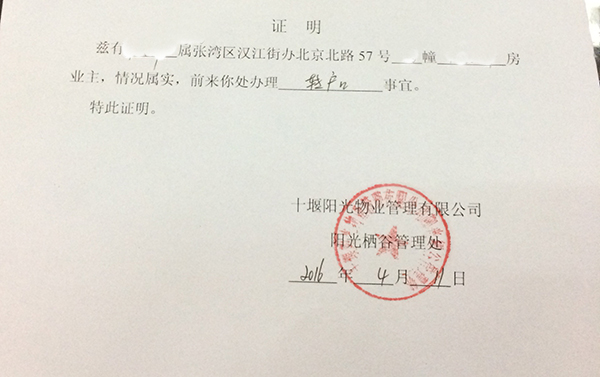 证 明
兹有 属张湾区汉江街办北京北路57号 幢 房
业主，情况属实，前来你处办理 转户口 事宜。
特此证明。
十堰阳光物业管理有限公司
阳光栖谷管理处
2016 年 4 月 11 日